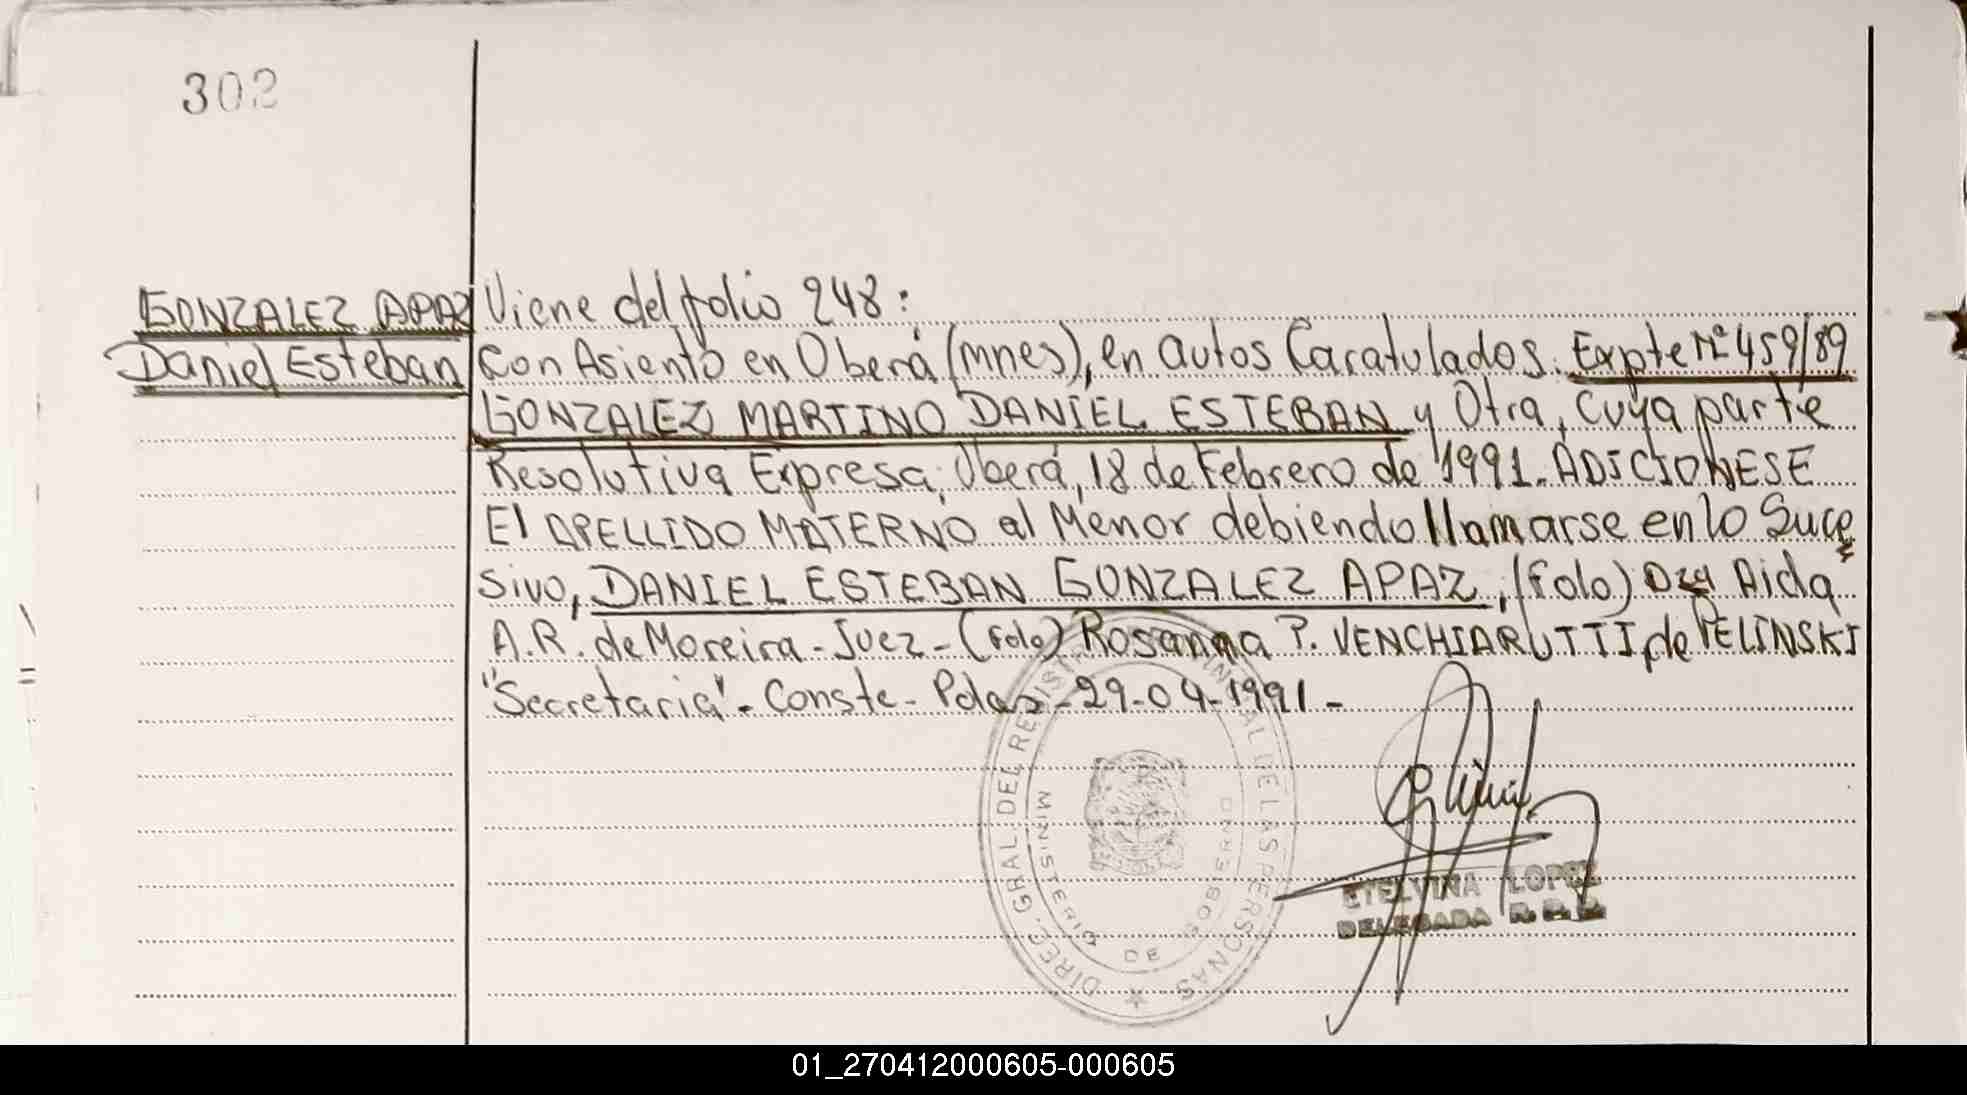 302
GONZALEZ APAZ
Daniel Esteban
Viene del folio 248:
Con Asiento en Oberá (mnes), en autos Caratulados. Expte Nº 459/89
GONZALEZ MARTINO DANIEL ESTEBAN y Otra, cuya parte
Resolutiva Expresa, Oberá, 18 de Febrero de 1991. ADICIONESE
El APELLIDO MATERNO al Menor debiendo llamarse en lo Suce
sivo, DANIEL ESTEBAN GONZALEZ APAZ, (fdo) Dra Aida
A.R. de Moreira - Juez - (fdo) Rosanna P. VENCHIARUTTI de PELINSKI
"Secretaria". Conste - Pdas - 29-04-1991 -
DIREC. GRAL. DEL REGIST PROVINCIAL DE LAS PERSONAS
MINISTERIO DE GOBIERNO
ETELVINA LOPEZ
DELEGADA R.P.P.
01_270412000605-000605